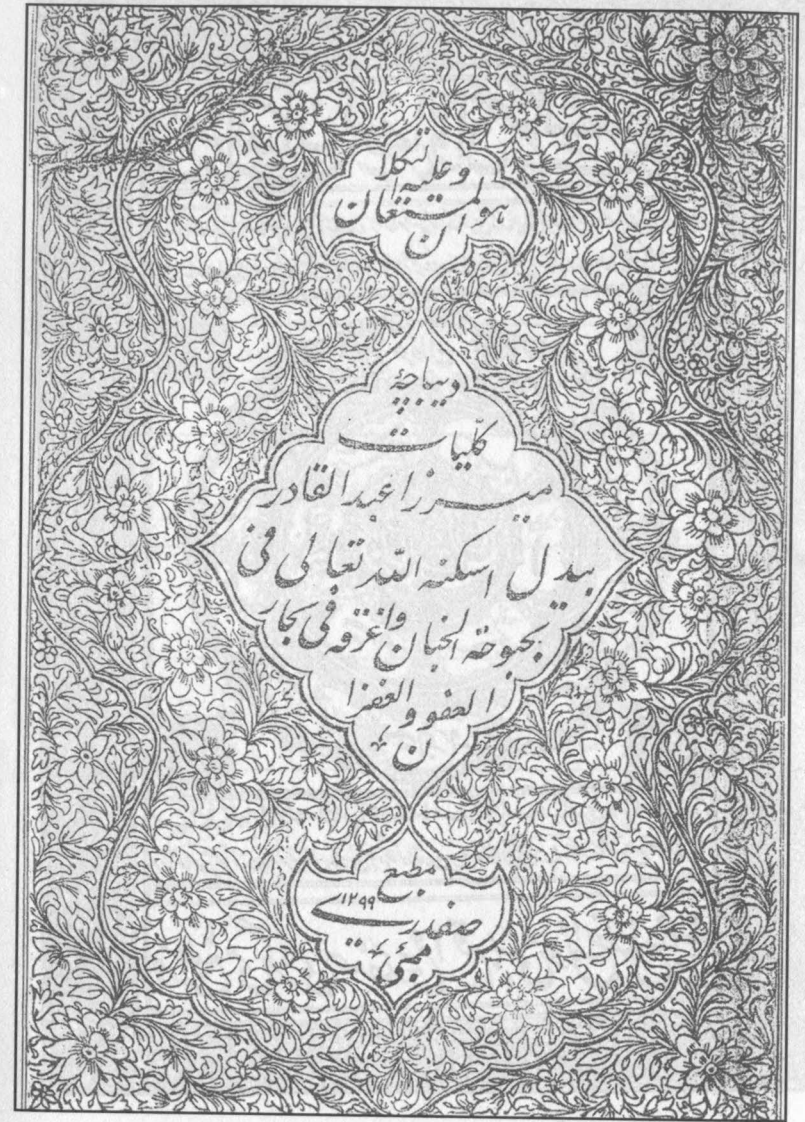 وعلیه التکلا
هوالمستعان
ن
دیباچهٔ
کلّیات
میرزا عبدالقادر
بیدل اسکنه اللّه تعالی فی
بحبوحة الجنان واغرقه فی بحار
العفو والغفرا
ن
مطبع
صفدری ۱۲۹۹
ممبئی